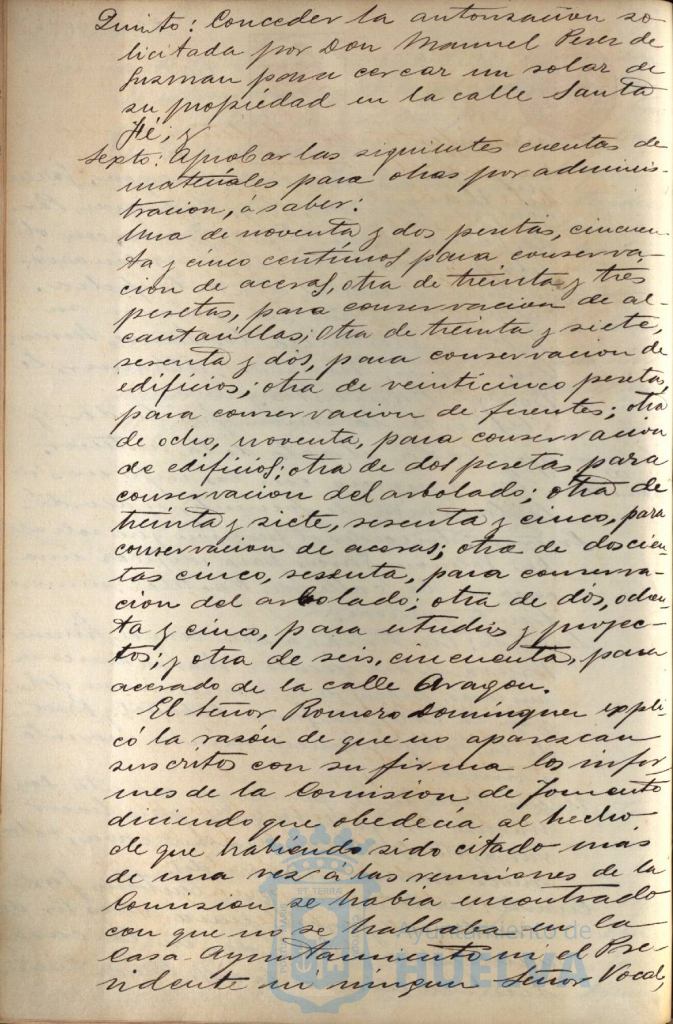 Quinto: Conceder la autorización so-
licitada por Don Manuel Perez de
Guzman para cercar un solar de
su propiedad en la calle Santa
Fé; y
Sexto: Aprobar las siguientes cuentas de
materiales para obras por adminis-
tracion, á saber:
Una de noventa y dos pesetas, cincuen-
ta y cinco centimos para conserva-
cion de aceras, otra de treinta y tres
pesetas, para conservacion de al-
cantarillas; otra de treinta y siete,
sesenta y dos, para conservacion de
edificios; otra de veinticinco pesetas,
para conservacion de fuentes; otra
de ocho, noventa, para conservacion
de edificios; otra de dos pesetas para
conservacion del arbolado; otra de
treinta y siete, sesenta y cinco, para
conservacion de aceras; otra de doscien-
tas cinco, sesenta, para conserva-
cion del arbolado; otra de dos, ochen-
ta y cinco, para estudios y proyec-
tos; y otra de seis, cincuenta, para
acerado de la calle Aragon.
El Señor Romero Dominguez expli-
có la razón de que no aparezcan
suscritos con su firma los infor-
mes de la Comision de Fomento
diciendo que obedecia al hecho
de que habiendo sido citado más
de una vez á las reuniones de la
Comision se habia encontrado
con que no se hallaba en la
Casa-Ayuntamiento ni el Pre-
sidente ni ningun Señor Vocal,
Ayuntamiento de
HUELVA